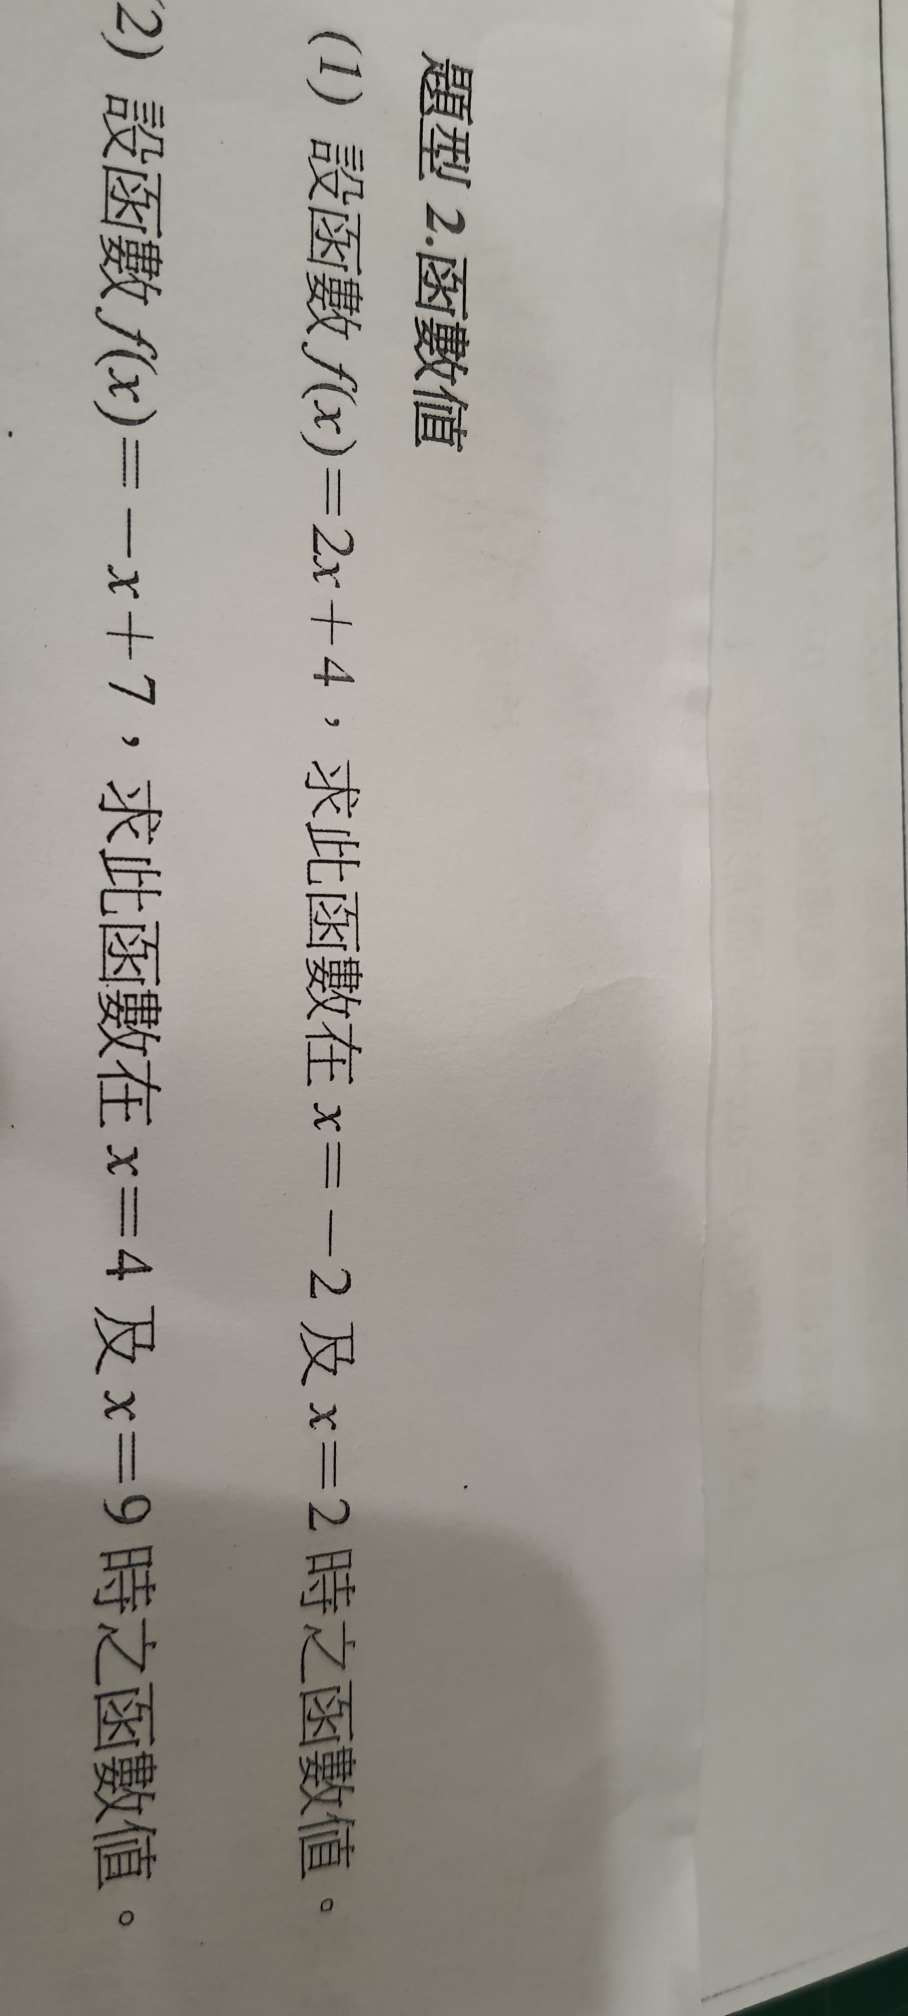 題型 2.函數值
(1) 設函數 f(x)=2x+4，求此函數在 x=－2 及 x=2 時之函數值。
2) 設函數 f(x)=－x+7，求此函數在 x=4 及 x=9 時之函數值。